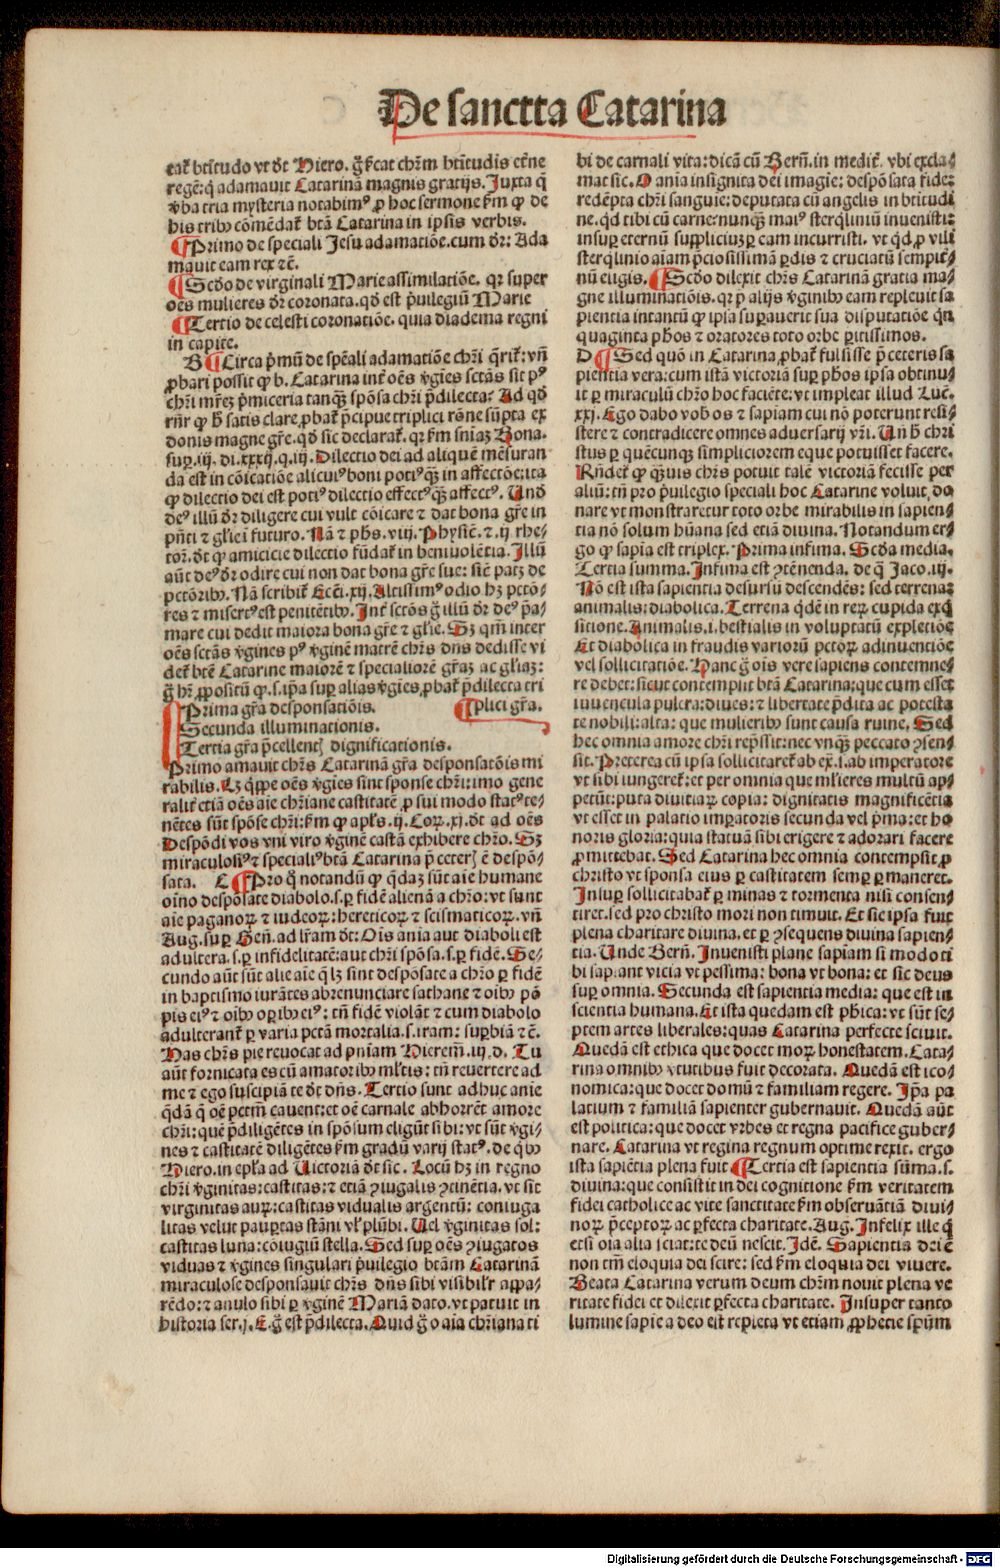 De sanctta Catarina
eat᷒ btītudo vt dt̄ Hiero. g̊ ſcat chr̄m btītudis et̄ne
regē: q̇ adamauit Catarinā magnis gratijs. Juxta q̄
v̄ba tria myſteria notabimꝰ ꝓ hoc ſermone ſm ꝙ de
his tribꝰ cōmēdat᷒ btā Catarina in ipſis verbis.
¶ Primo de ſpeciali Jeſu adamatiōe. cum dr̄: Ada
mauit eam rex ⁊c̄.
¶ Scd̄o de virginali Marie aſſimilatiōe. qꝛ ſuper
oēs mulieres dr̄ coronata. qd̄ eſt p̄uilegiū Marie
¶ Tertio de celeſti coronatiōe. quia diadema regni
in capite.
B ¶ Circa p̄mū de ſpēali adamatiōe chr̄i q̄rit᷒: vn̄
ꝓbari poſſit ꝙ b. Catarina int᷒ oēs v̄gies ſctās ſit pꝰ
chr̄i mr̄eꝫ p̄miceria tanqꝫ ſpōſa chr̄i p̄dilecta? Ad qd̄
rn̄r ꝙ ꝫ ſatis clare ꝓbat᷒ p̄cipue triplici rōne ſūpta ex
donis magne gr̄e. qd̄ ſic declarat᷒. qꝛ ſm ſniaꝫ Bona.
ſuꝑ. iij. di. xxxij. q. iij. Dilectio dei ad aliquē mēſuran
da eſt in cōicatiōe alicuiꝰ boni potiꝰ qꝫ in affectōe: ita
ꝙ dilectio dei eſt potiꝰ dilectio effectꝰ qꝫ affectꝰ. Und̄
deꝰ illū dr̄ diligere cui vult cōicare ⁊ dat bona gr̄e in
pn̄ti ⁊ gl̄ie ī futuro. Nā ⁊ phs. viij. Phyſic̄. ⁊. ij rhe-
tor. dt̄ ꝙ amicicie dilectio fūdat᷒ in beniuolētia. Illū
aūt deꝰ dr̄ odire cui non dat bona gr̄e ſue: ſic̄ patꝫ de
pctōribꝰ. Nā ſcribit᷒ Ecc̄i. xij. Altiſſimꝰ odio hꝫ pctō-
res ⁊ miſertꝰ eſt penitētibꝰ. Int᷒ ſctōs g̊ illū dr̄ deꝰ p̄a-
mare cui dedit maiora bona gr̄e ⁊ gl̄ie. Sꝫ qm̄ inter
oēs ſctās v̄gines pꝰ v̄ginē matrē chr̄s dn̄s dediſſe vi
det᷒ btē Catarine maiorē ⁊ ſpecialiorē gr̄aꝫ ac gl̄iaꝫ:
g̊ hꝫ ꝓpoſitū ꝙ. ſ. ip̄a ſuꝑ alias v̄gīes ꝓbat᷒ p̄dilecta tri
Prima gr̄a deſponſatiōis. ¶ plici gr̄a.
Secunda illuminationis.
Tertia gr̄a p̄cellentꝭ dignificationis.
Primo amauit chr̄s Catarinā gr̄a deſponſatōis mi
rabilis. Lꝫ q̇ppe oēs v̄gies ſint ſponſe chr̄i: imo gene
ralit᷒ etiā oēs aīe chr̄iane caſtitatē ꝓ ſui modo ſtatꝰ te-
nētes ſūt ſpōſe chr̄i: ſm ꝙ apl̄s. ij. Coꝝ. xj. dt̄ ad oēs
Deſpōdi vos vni viro v̄ginē caſtā exhibere chr̄o. Sꝫ
miraculoſiꝰ ⁊ ſpecialiꝰ btā Catarina p̄ ceterꝭ ē deſpō-
ſata. C ¶ Pro q̊ notandū ꝙ q̄daꝫ ſūt aīe humane
oīno deſpōſate diabolo. ſ. ꝑ fidē alienā a chr̄o: vt ſunt
aīe paganoꝝ ⁊ iudeoꝝ: hereticoꝝ ⁊ ſciſmaticoꝝ. vn̄
Aug. ſuꝑ Gen̄. ad lr̄am dt̄: Ois anīa aut diaboli eſt
adultera. ſ. ꝑ infidelitatē: aut chr̄i ſpōſa. ſ. ꝑ fidē. Se-
cundo aūt ſūt alie aīe q̄ lꝫ ſint deſpōſate a chr̄o ꝑ fidē
in baptiſmo iurātes abrenunciare ſathane ⁊ oībꝰ pō
pis eiꝰ ⁊ oībꝰ oꝑibꝰ eiꝰ: tn̄ fidē violāt ⁊ cum diabolo
adulterant᷒ ꝑ varia pctā mortalia. ſ. iram: ſuꝑbiā ⁊c̄.
Has chr̄s pie reuocat ad pniam Hierem̄. iij. d. Tu
aūt fornicata es cū amatoribꝰ ml̄tis: tn̄ reuertere ad
me ⁊ ego ſuſcipiā te dt̄ dn̄s. Tertio ſunt adhuc anīe
q̄dā q̄ oē petm̄ cauent: et oē carnale abhorrēt amore
chr̄i: quē p̄diligētes in ſpōſum eligūt ſibi: vt ſūt v̄gi-
nes ⁊ caſtitatē diligētes ſm gradū varij ſtatꝰ. de q̇bꝰ
Hiero. in epl̄a ad Uictoriā dt̄ ſic. Locū hꝫ in regno
chr̄i v̄ginitas: caſtitas: ⁊ etiā ꝯiugalis ꝯtinētia. vt ſit
virginitas auꝝ: caſtitas vidualis argentū: coniuga
litas velut pauꝑtas ſtāni vl̓ pl̄ūbi. Uel v̄ginitas ſol:
caſtitas luna: cōiugiū ſtella. Sed ſuꝑ oēs ꝯiugatos
viduas ⁊ v̄gines ſingulari p̄uilegio btām Catarinā
miraculoſe deſponſauit chr̄s dn̄s ſibi viſibil̓r appa-
rēdo: ⁊ anulo ſibi ꝑ v̄ginē Mariā dato. vt patuit in
hiſtoria ſer. j. E. g̊ eſt p̄dilecta. Quid g̊ o aīa chr̄iana ti
bi de carnali vita: dicā cū Bern̄. in medit᷒. vbi excla-
mat ſic. O anīa inſignita dei imagīe: deſpōſata fide:
redēpta chr̄i ſanguīe: deputata cū angelis in btitudi
ne. qd tibi cū carne: nunqꝫ maiꝰ ſterqliniū inueniſti:
inſuꝑ eternū ſuppliciuꝫ ꝑ eam incurriſti. vt qd ꝓ vili
ſterqlinio aīam p̄cioſiſſimā ꝑdis ⁊ cruciatū ſempit᷒-
nū eligis. ¶ Scd̄o dilexit chr̄s Catarinā gratia ma-
gne illuminatiōis. qꝛ p̄ alijs v̄ginibꝰ eam repleuit ſa
pientia intantū ꝙ ipſa ſuꝑauerit ſua diſputatiōe qn̄
quaginta phos ⁊ oratores toto orbe ꝑitiſſimos.
D ¶ Sed quō in Catarina ꝓbat᷒ fulſiſſe p̄ ceteris ſa
pientia vera: cum iſtā victoriā ſuꝑ phos ipſa obtinu-
it ꝑ miraculū chr̄o hoc faciēte: vt impleat illud Luc̄.
xxj. Ego dabo vob̄ os ⁊ ſapiam cui nō poterunt reſi-
ſtere ⁊ contradicere omnes aduerſarij vr̄i. Un̄ ꝫ chri
ſtus ꝑ quēcunqꝫ ſimpliciorem eque potuiſſet facere.
Rn̄det᷒ ꝙ qꝫuis chr̄s potuit talē victoriā feciſſe per
aliū: tn̄ pro p̄uilegio ſpeciali hoc Catarine voluit do
nare vt monſtraretur toto orbe mirabilis in ſapien-
tia nō ſolum hūana ſed etiā diuina. Notandum er-
go ꝙ ſapīa eſt triplex. Prima infima. Scd̄a media.
Tertia ſumma. Infima eſt ꝯtēnenda. de q̄ Jaco. iij.
Nō eſt iſta ſapientia deſurſū deſcendēs: ſed terrena:
animalis: diabolica. Terrena q̇dē in reꝝ cupida exq̇
ſitione. Animalis .i. beſtialis in voluptatū expletiōe
Et diabolica in fraudis varioꝝ pctoꝝ adinuentiōe
vel ſollicitatiōe. Hanc g̊ oīs vere ſapiens contemne-
re debet: ſicut contempſit btā Catarina: que cum eſſet
iuuencula pulcra: diues: ⁊ libertate p̄dita ac poteſta
te nobili: alta: que mulieribꝰ ſunt cauſa ruine. Sed
hec omnia amore chr̄i rep̄ſſit: nec vnqꝫ peccato ꝯſen-
ſit. Preterea cū ipſa ſollicitaret᷒ ab ex. ſ. ab imperatore
vt ſibi iungeret᷒: et per omnia que ml̄ieres multū ap-
petūt: puta diuitiaꝝ copia: dignitatis magnificētia
vt eſſet in palatio imꝑatoris ſecunda vel p̄ma: et ho
noris gloria: quia ſtatuā ſibi erigere ⁊ adorari facere
ꝓmittebat. Sed Catarina hec omnia contempſit ꝓ
chriſto vt ſponſa eius ꝑ caſtitatem ſemꝑ ꝑmaneret.
Inſuꝑ ſollicitabat᷒ ꝑ minas ⁊ tormenta niſi conſen-
tiret. ſed pro chriſto mori non timuit. Et ſic ipſa fuit
plena charitate diuina. et ꝑ ꝯſequens diuina ſapien-
tia. Unde Bern̄. Inueniſti plane ſapīam ſi modo ti
bi ſapiant vicia vt peſſima: bona vt bona: et ſic deus
ſuꝑ omnia. Secunda eſt ſapientia media: que eſt in
ſcientia humana. Et iſta quedam eſt phica: vt ſūt ſe-
ptem artes liberales: quas Catarina perfecte ſciuit.
Quedā eſt ethica que docet moꝝ honeſtatem. Cata-
rina omnibꝰ vtutibus fuit decorata. Quedā eſt ico-
nomica: que docet domū ⁊ familiam regere. Ip̄a pa
latium ⁊ familiā ſapienter gubernauit. Quedā aūt
eſt politica: que docet vrbes et regna pacifice guber-
nare. Catarina vt regina regnum optime rexit. ergo
iſta ſapiētia plena fuit ¶ Tertia eſt ſapientia ſūma. ſ.
diuina: que conſiſtit in dei cognitione ſm veritatem
fidei catholice ac vite ſanctitate ſm obſeruātiā diui-
noꝝ p̄ceptoꝝ ac ꝑfecta charitate. Aug. Infelix ille q̇
etſi oīa alia ſciat: te deū neſcit. Idē. Sapientia dei ē
non tm̄ eloquia dei ſcire: ſed ſm eloquia dei viuere.
Beata Catarina verum deum chr̄m nouit plena ve
ritate fidei et dilexit ꝑfecta charitate. Inſuper tanto
lumine ſapīe a deo eſt repleta vt etiam ꝓphetie ſpūm
Digitalisierung gefördert durch die Deutsche Forschungsgemeinschaft - DFG